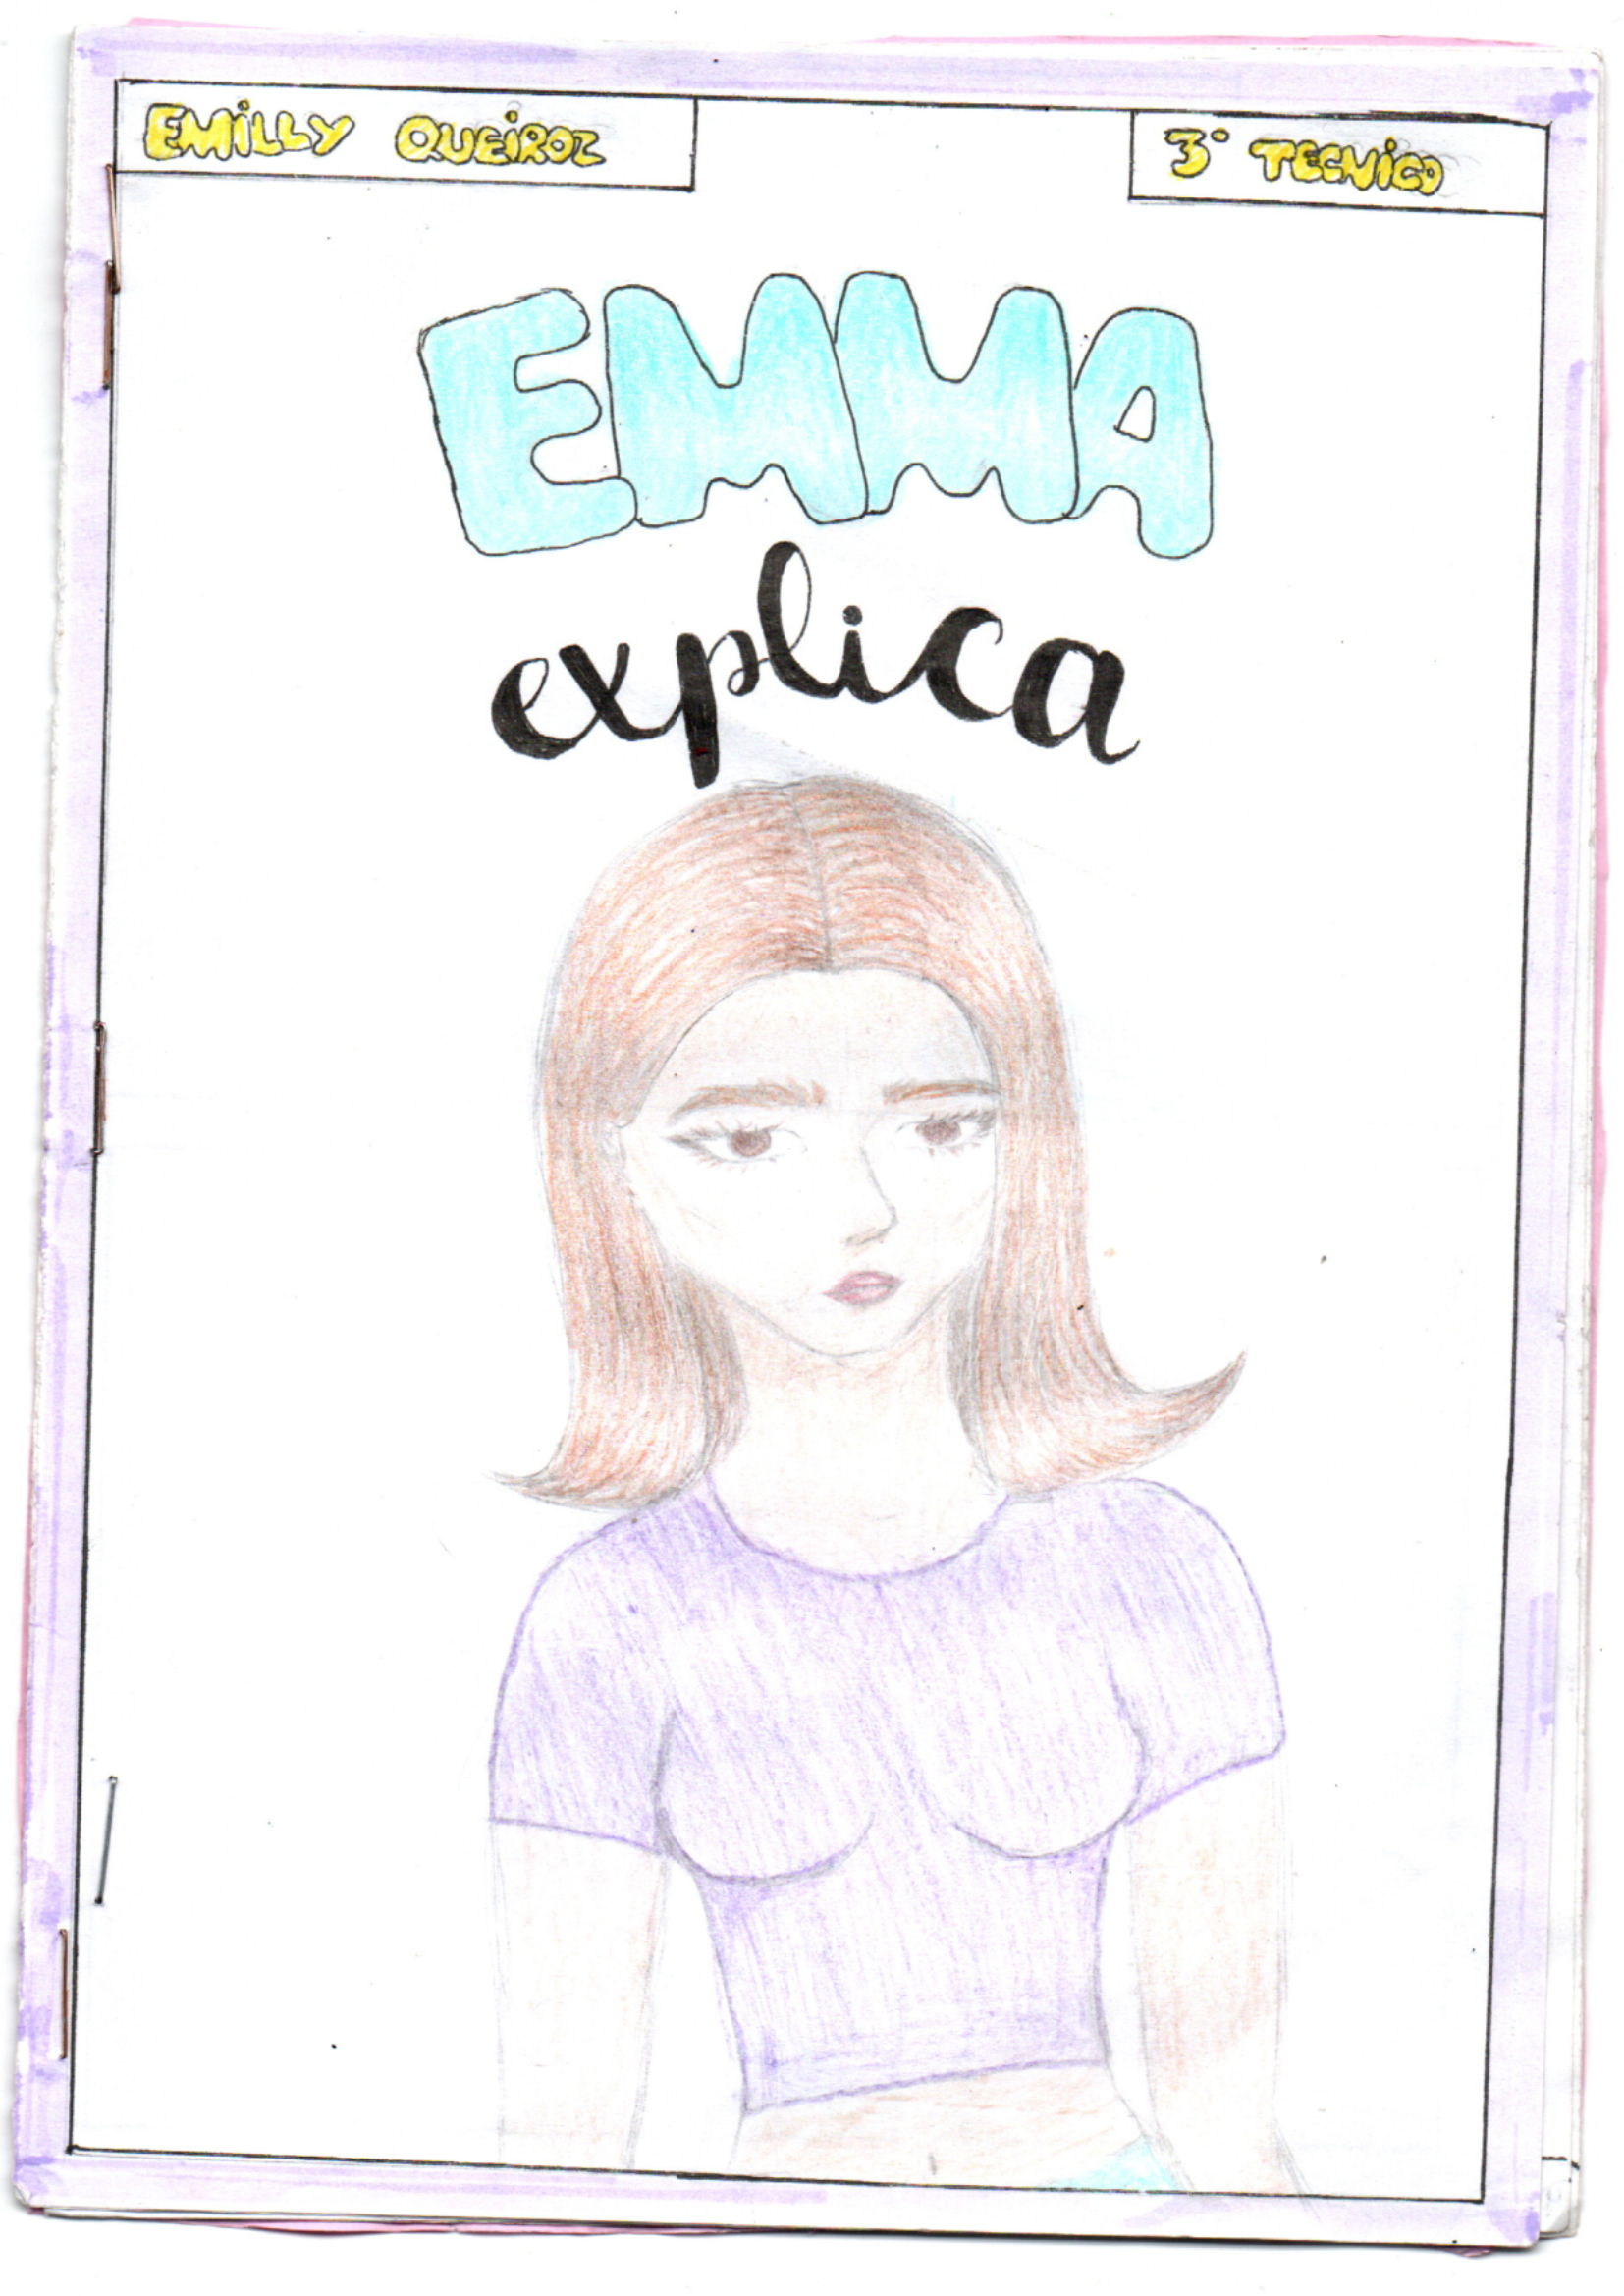 EMiLLY QUEiROZ
3° TECNiCO
EMMA
explica